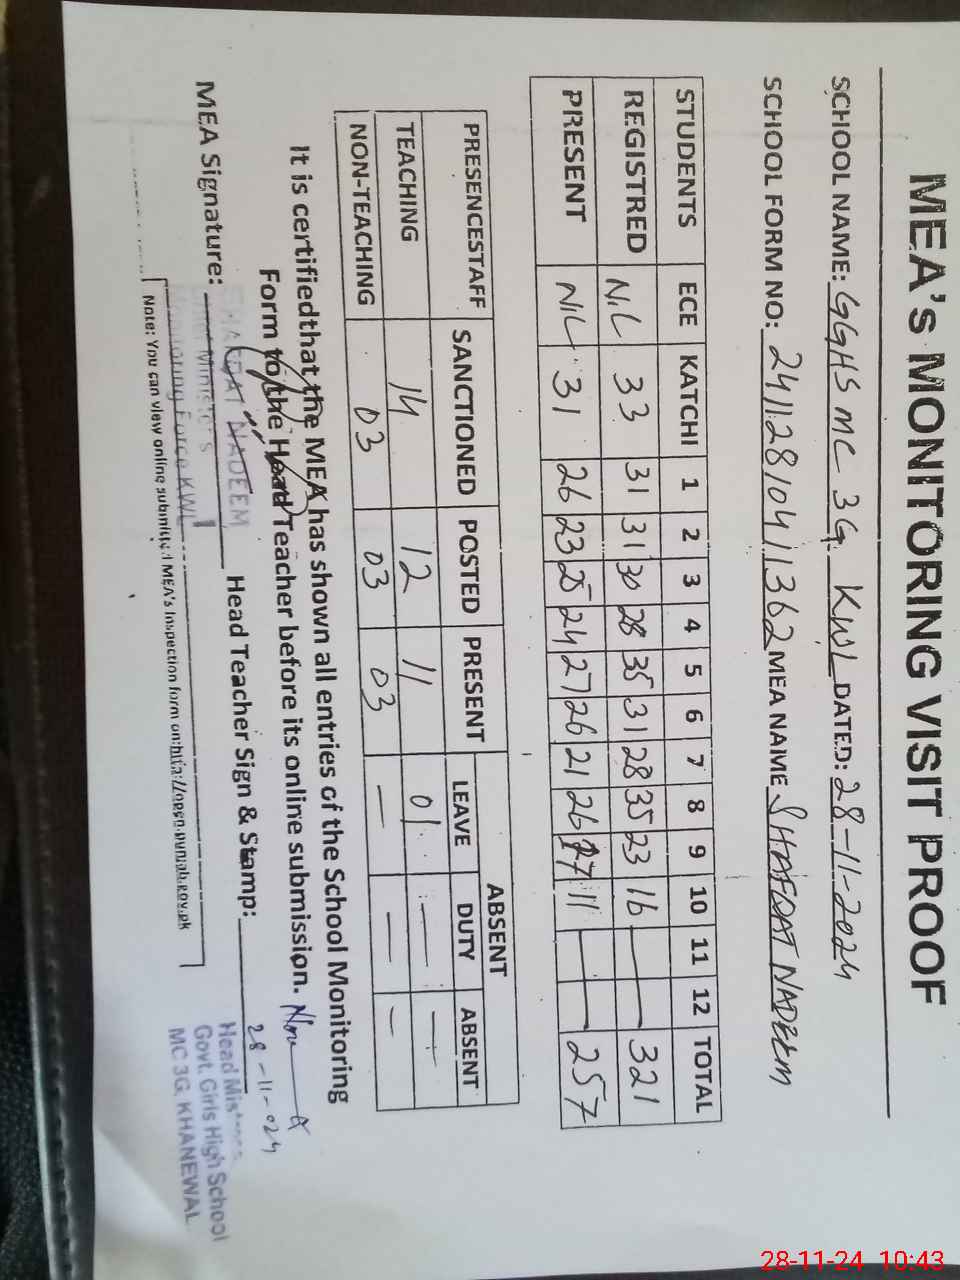 MEA's MONITORING VISIT PROOF
SCHOOL NAME: GGHS MC 3G KWL DATED: 28-11-2024
SCHOOL FORM NO: 24112810411362 MEA NAME SHAFQAT NADEEM
STUDENTS ECE KATCHI 1 2 3 4 5 6 7 8 9 10 11 12 TOTAL
REGISTRED NIL 33 31 31 30 28 35 31 28 35 23 16 — — 321
PRESENT NIL 31 26 23 25 24 27 26 21 26 17 11 — — 257
PRESENCESTAFF SANCTIONED POSTED PRESENT ABSENT
LEAVE DUTY ABSENT
TEACHING 14 12 11 01 — —
NON-TEACHING 03 03 03 — — —
It is certifiedthat the MEA has shown all entries of the School Monitoring
Form to the Head Teacher before its online submission.
MEA Signature: Head Teacher Sign & Stamp:
28-11-024
SHAFQAT NADEEM
Chief Minister's
Monitoring Force KWL
Head Mistress
Govt. Girls High School
MC 3G. KHANEWAL
Note: You can view online submitted MEA's Inspection form on:http://open.punjab.gov.pk
28-11-24 10:43